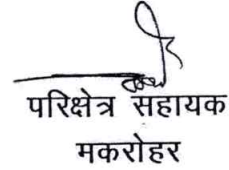 परिक्षेत्र सहायक
मकरोहर